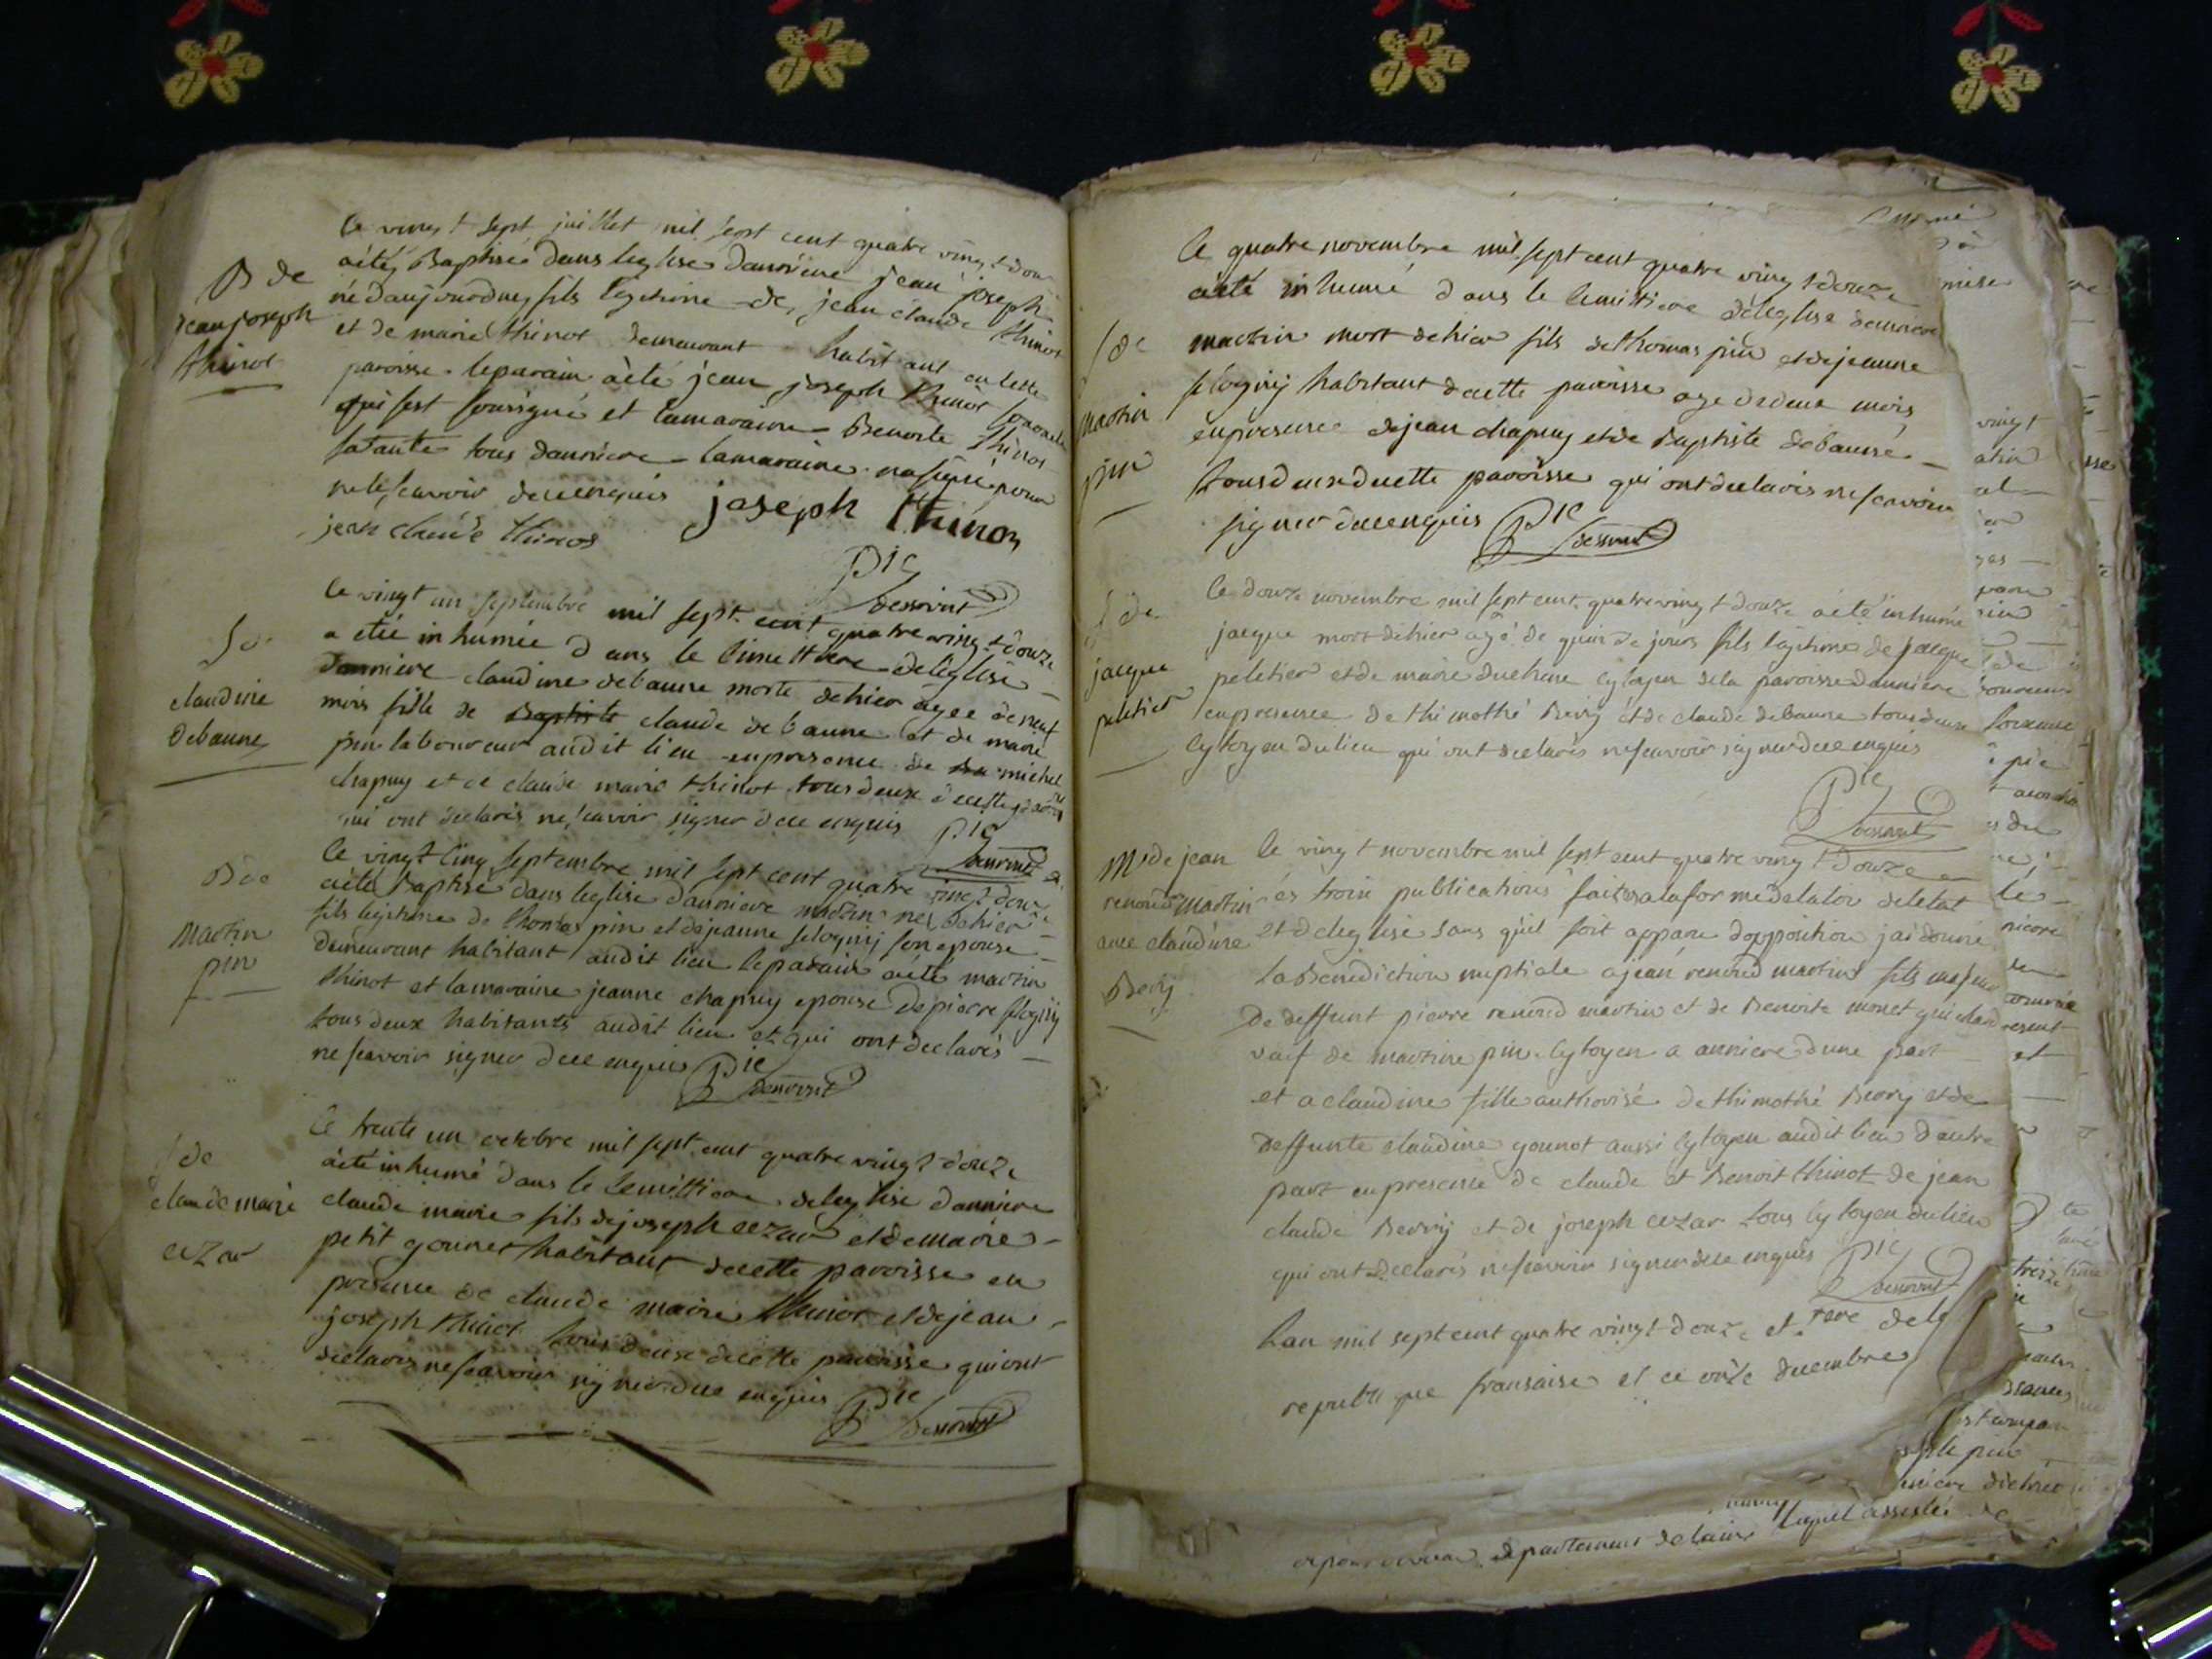 B de
jean joseph
thinot
le vingt sept juillet mil sept cent quatre vingt douze
àété Baptisé dans leglise danniere jean joseph
né daujourduy fils legitime de jean claude thinot
et de marie thinot demeurant habitant en cette
paroisse. leparain àété jean joseph thinot
qui sest sousigné et lamaraine Benoite thinot
satante tous danniere lamaraine na signé pour
ne le scavoir de ce enquis joseph thinon
jean claude thinos
Pic
desservit
S de
claudine
debaune
le vingt un septembre mil sept cent quatre vingt douze
a été inhumée dans le cimettiere deleglise
danniere claudine debaune morte dehier agée de neuf
mois fille de Baptiste claude debaune et de marie
pin laboureur audit lieu en presence de michel
chapuy et de claude marie thinot tous deux de cette paroisse
qui ont declarés ne scavoir signer de ce enquis Pic
desservit
B de
martin
pin
le vingt cinq septembre mil sept cent quatre vingt douze
àété Baptisé dans leglise danniere martin né dehier
fils legitime de thomas pin et dejeanne slogny son epouse
demeurant habitant audit lieu leparain àété martin
thinot et lamaraine jeanne chapuy epouse de pierre slogny
tous deux habitants audit lieu et qui ont declarés
ne scavoir signer de ce enquis Pic
desservit
S de
claude marie
cezar
le trente un octobre mil sept cent quatre vingt douze
àété inhumé dans le cemittiere deleglise danniere
claude marie fils dejoseph cezar et de marie
petit gounet habitant decette paroisse en
presence de claude marie thinot et dejean
joseph thinot tous deux decette paroisse qui ont
declarés ne scavoir signer de ce enquis Pic
desservit
S de
martin
pin
le quatre novembre mil sept cent quatre vingt douze
àété inhumé dans le cemittiere deleglise danniere
martin mort dehier fils dethomas pin et dejeanne
slogny habitant decette paroisse age dedeux mois
enpresence dejean chapuy et de Baptiste debaune
tous deux decette paroisse qui ont declarés ne scavoir
signer de ce enquis Pic
desservit
S de
jacque
peletier
le douze novembre mil sept cent quatre vingt douze àété inhumé
jacque mort dehier agé de quinze jours fils legitime de jacque
peletier et de marie duchene cytoyen dela paroisse danniere
enpresence de thimothé Berry et de claude debaune tous deux
cytoyen du lieu qui ont declarés ne scavoir signer de ce enquis
Pic
desservit
M de jean
renoud martin
avec claudine
Berry
le vingt novembre mil sept cent quatre vingt douze
és trois publications faites ala forme delaloy deletat
et deleglise sans quil soit apparu dopposition jai donné
la Benediction nuptiale a jean renoud martin fils majeur
De deffunt pierre renoud martin et de Benoite monet
veuf de martine pin cytoyen a anniere dune part
et a claudine fille authorisé de thimothé Berry et de
deffunte claudine gounot aussi cytoyen audit lieu dautre
part en presence de claude et Benoit thinot de jean
claude Berry et de joseph cezar tous cytoyen du lieu
qui ont declarés ne scavoir signer de ce enquis Pic
desservit
Lan mil sept cent quatre vingt douze et 1ere dela
republique fransaise et ce onze decembre
departement de lain lequel assisté de